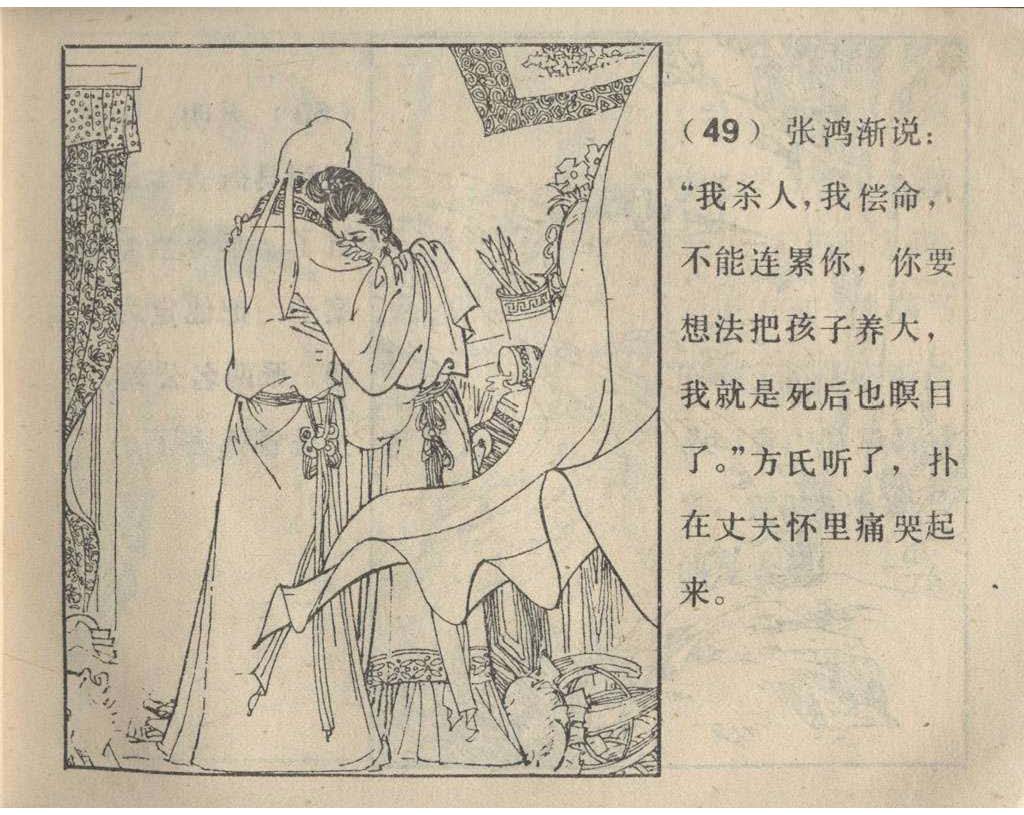 （49）张鸿渐说：
“我杀人，我偿命，
不能连累你，你要
想法把孩子养大，
我就是死后也瞑目
了。”方氏听了，扑
在丈夫怀里痛哭起
来。